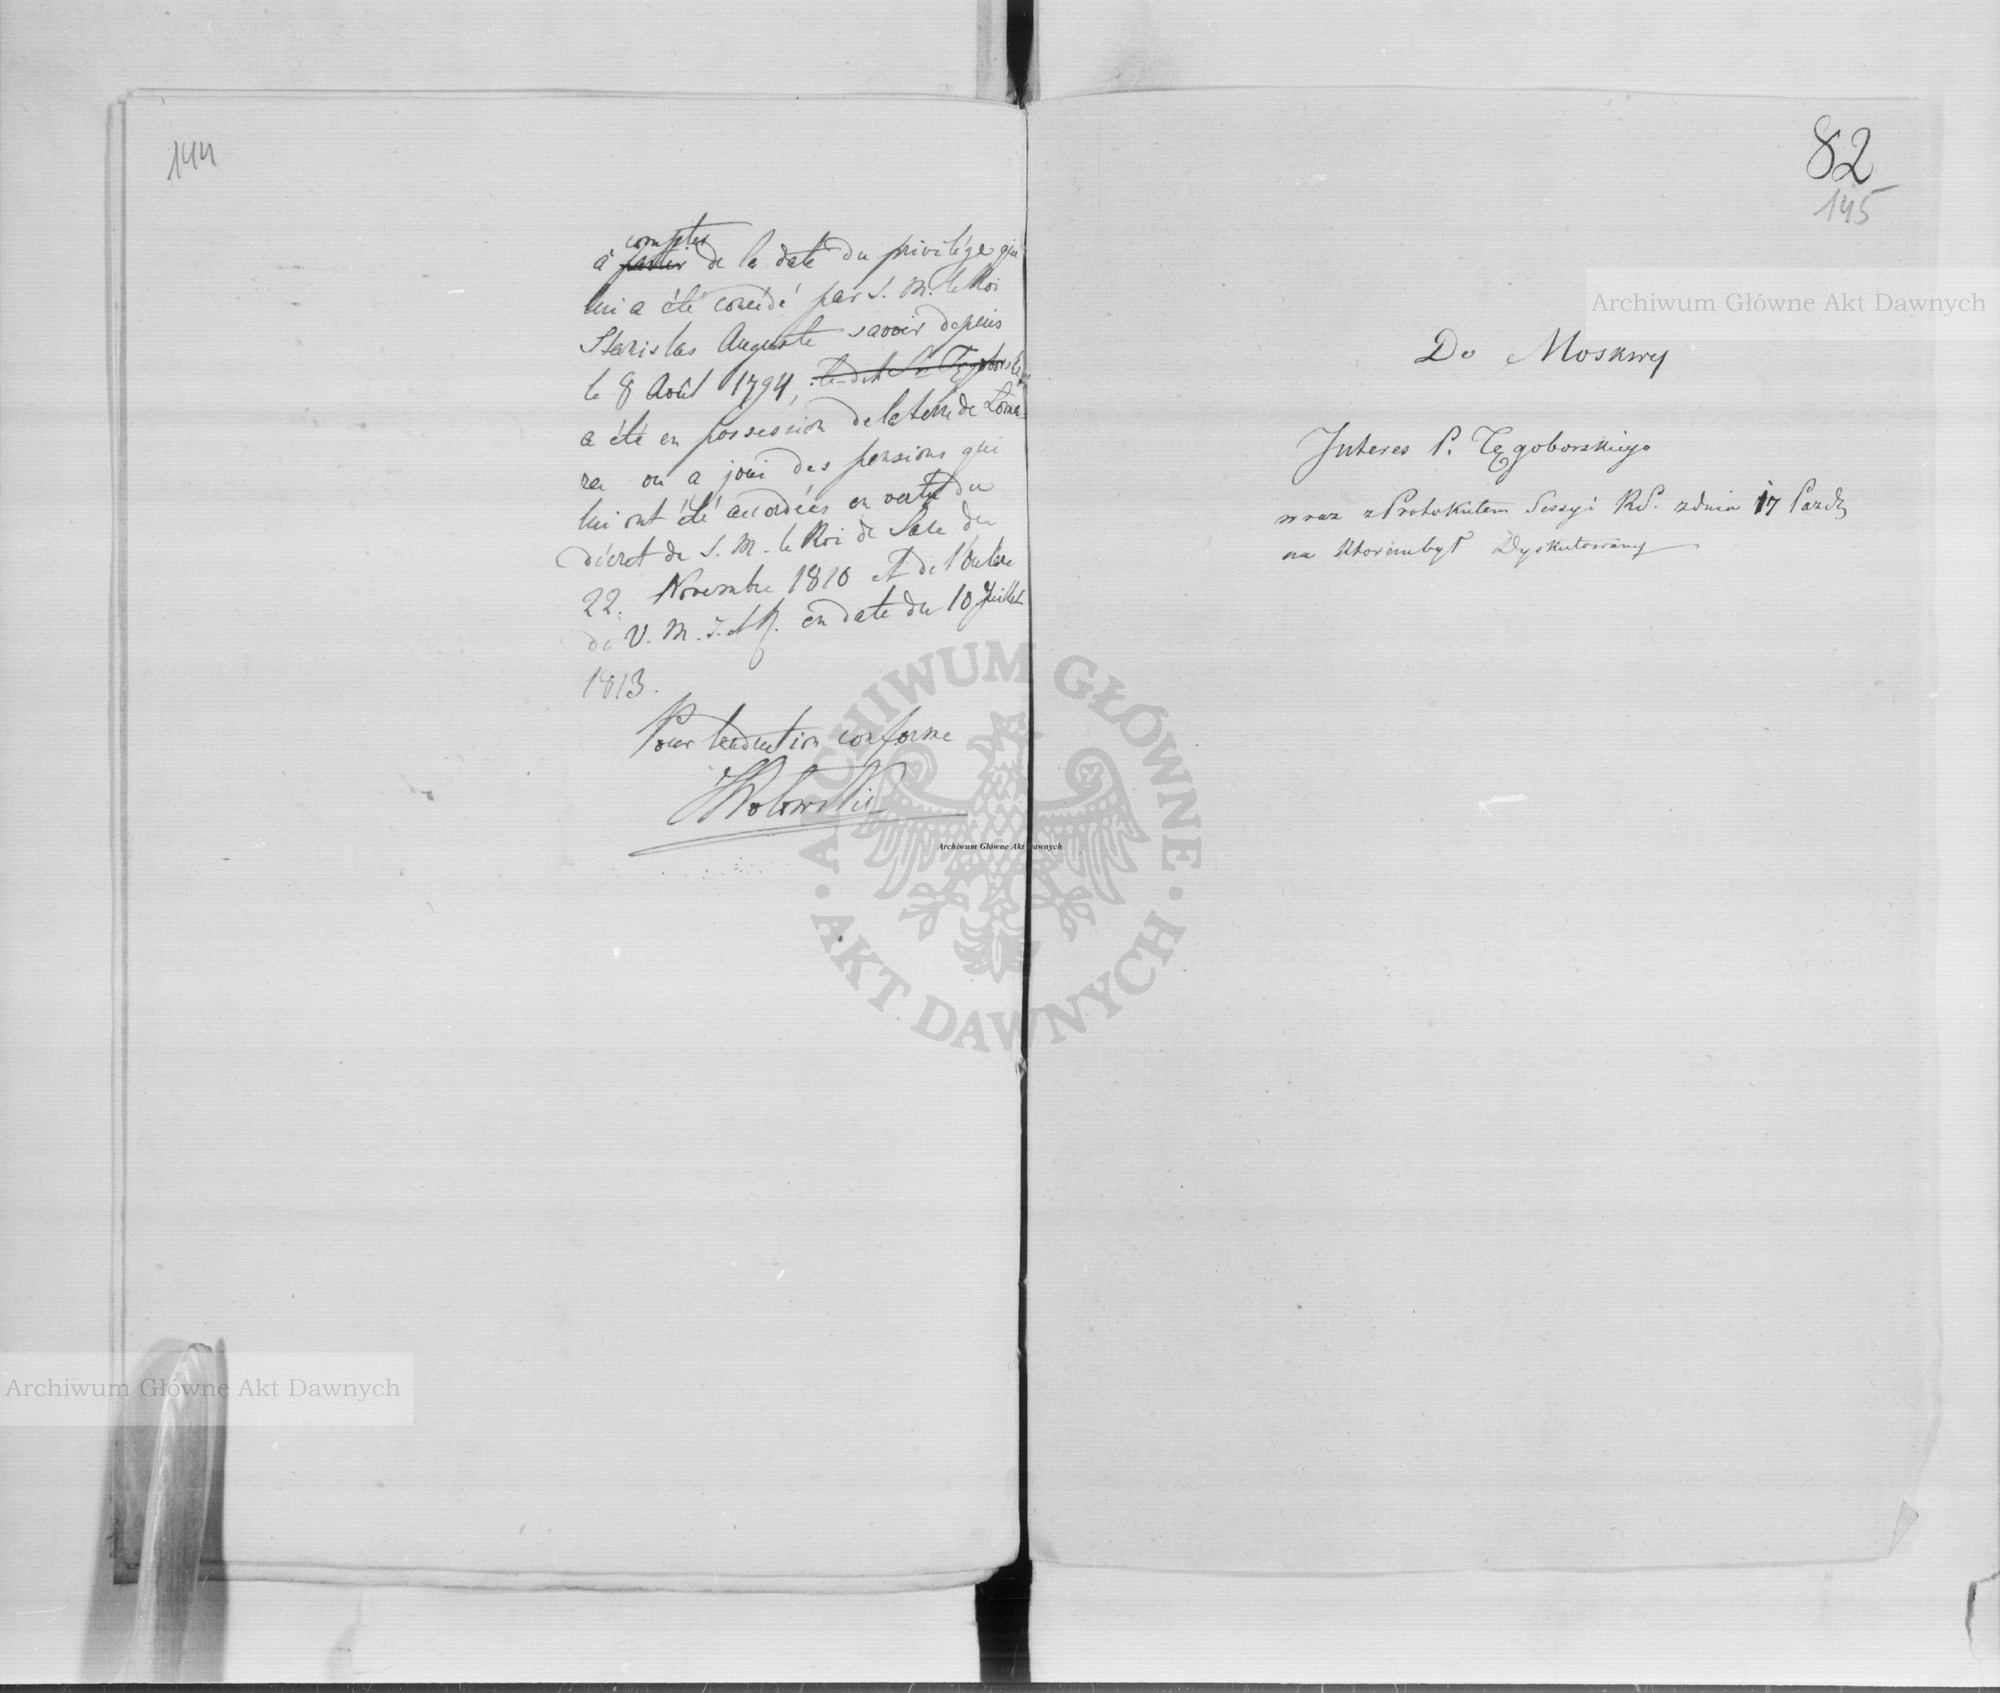 144
compter
à partir de la date du privilége qui
lui a été concédé par S. M. le Roi
Stanislas Auguste savoir depuis
le 8 Août 1794, le dit Sr Tęgoborski
a été en possession de la terre de Loma=
za ou a joui des pensions qui
lui ont été accordées en vertu du
décret de S. M. le Roi de Saxe du
22. Novembre 1810 et de l'ordre
de V. M. I. et R. en date du 10 Juillet
1813.
Pour traduction conforme
82
145
Do Moskwy
Interes P. Tęgoborskiego
wraz z Protokułem Sessyi RS. z dnia 17 Paźdz
na ktorem był Dyskutowany
Archiwum Główne Akt Dawnych
Archiwum Główne Akt Dawnych
Archiwum Główne Akt Dawnych
ARCHIWUM GŁÓWNE AKT DAWNYCH